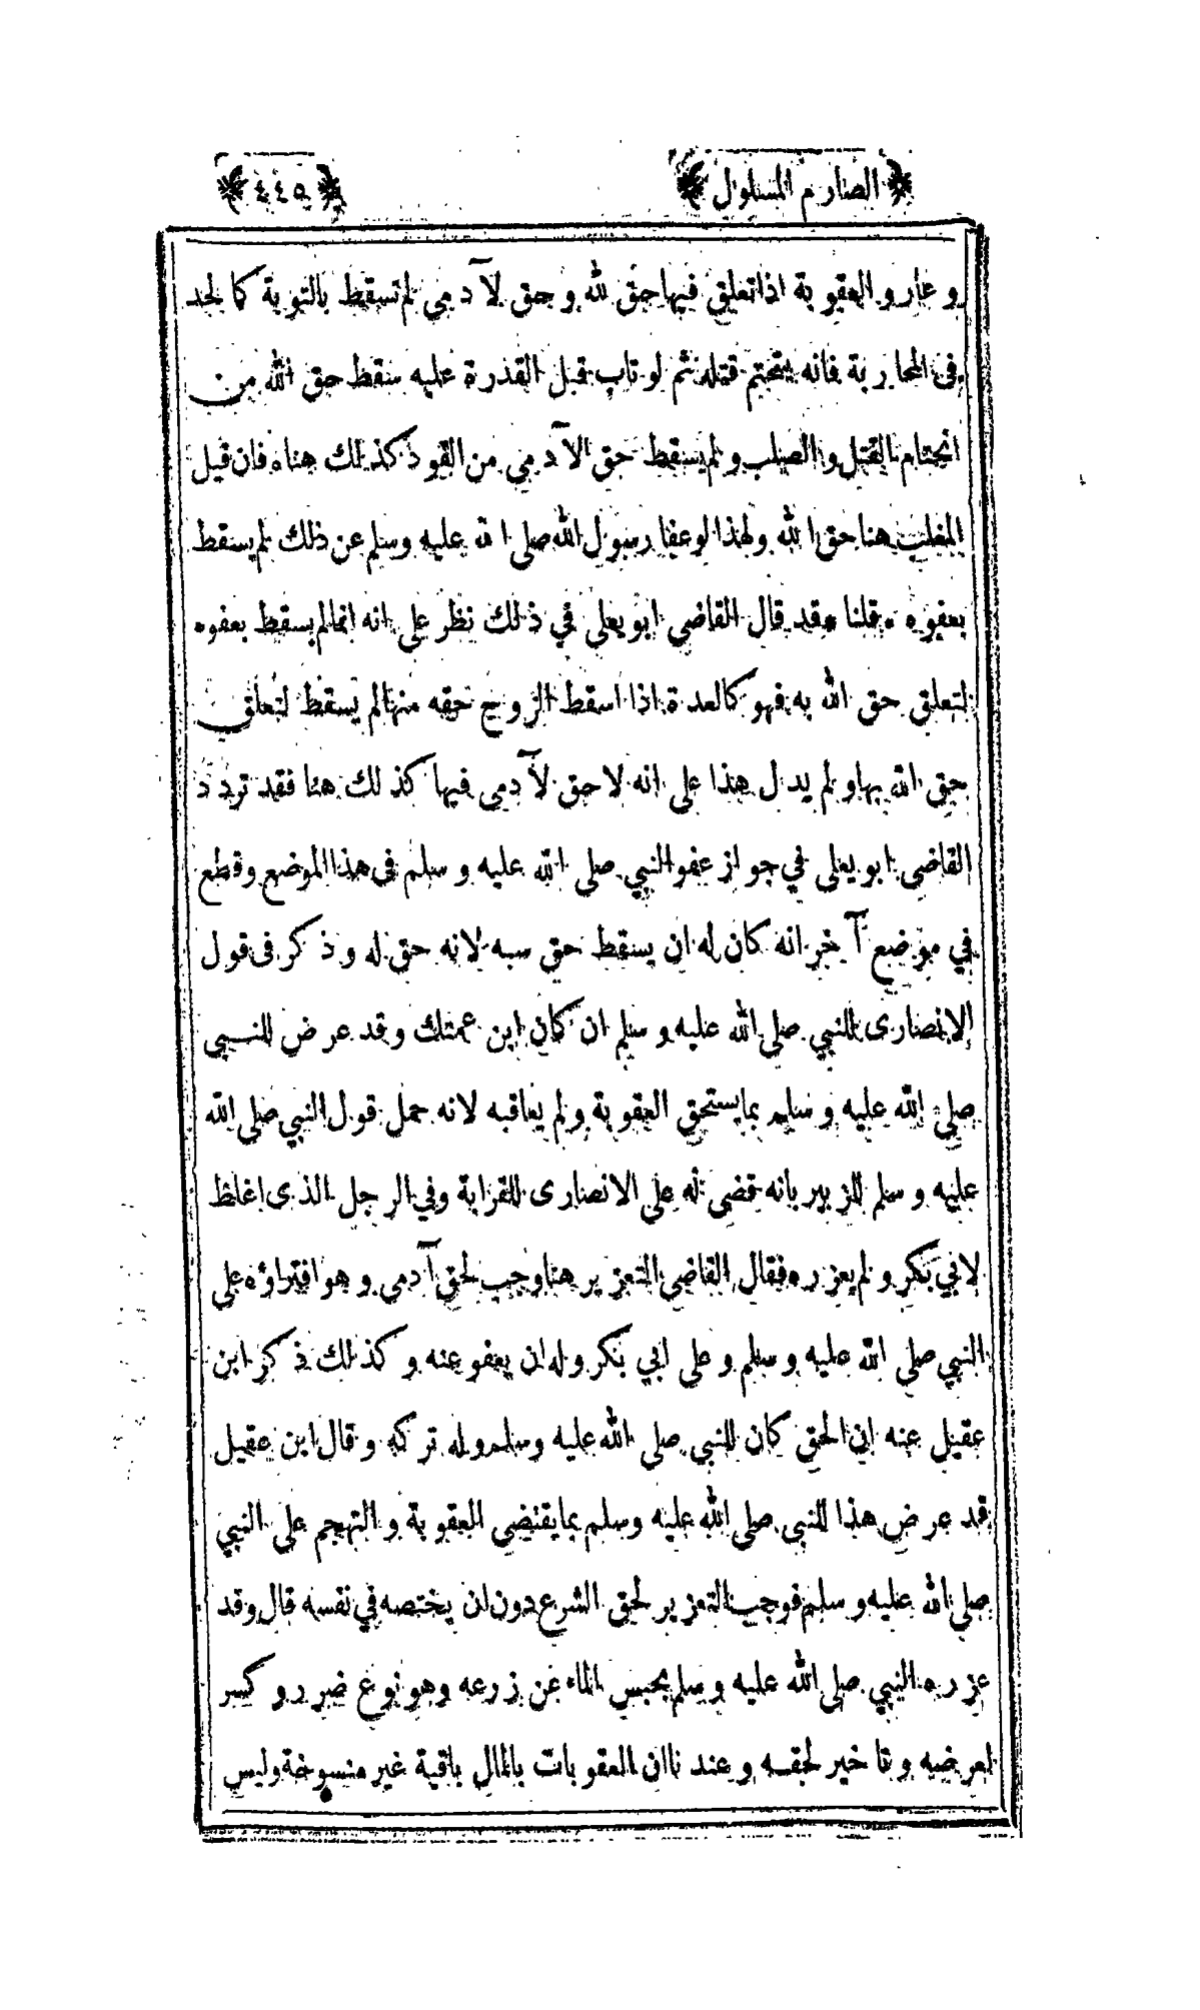 الصارم المسلول
٤٤٥
وعار والعقوبة اذا تعلق فيها حق لله وحق لآدمي لم تسقط بالتوبة كالحد
في المحاربة فانه يتحتم قتله ثم لو تاب قبل القدرة عليه سقط حق الله من
انحتام القتل والصلب ولم يسقط حق الآدمي من القود كذلك هنا * فان قيل
المغلب هنا حق الله ولهذا لو عفا رسول الله صلى الله عليه وسلم عن ذلك لم يسقط
بعفوه * قلنا * قد قال القاضي ابو يعلى في ذلك نظر على انه انما لم يسقط بعفوه
لتعلق حق الله به فهو كالعدة اذا اسقط الزوج حقه منها لم يسقط لتعلق
حق الله بها ولم يدل هذا على انه لا حق لآدمي فيها كذلك هنا فقد تردد
القاضي ابو يعلى في جواز عفو النبي صلى الله عليه وسلم في هذا الموضع وقطع
في موضع آخر انه كان له ان يسقط حق سبه لانه حق له وذكر في قول
الانصارى للنبي صلى الله عليه وسلم ان كان ابن عمتك وقد عرض للنبي
صلى الله عليه وسلم بما يستحق العقوبة ولم يعاقبه لانه حمل قول النبي صلى الله
عليه وسلم للزبير بانه قضى له على الانصارى للقرابة وفي الرجل الذى اغلظ
لابي بكر ولم يعزره فقال القاضي التعزير هنا وجب لحق آدمي وهو افتراؤه على
النبي صلى الله عليه وسلم وعلى ابي بكر وله ان يعفو عنه وكذلك ذكر ابن
عقيل عنه ان الحق كان للنبي صلى الله عليه وسلم وله تركه وقال ابن عقيل
قد عرض هذا للنبي صلى الله عليه وسلم بما يقتضي العقوبة والتهجم على النبي
صلى الله عليه وسلم فوجب التعزير لحق الشرع دون ان يختصه في نفسه قال وقد
عزره النبي صلى الله عليه وسلم بحبس الماء عن زرعه وهو نوع ضرر وكسر
لعرضه وتاخير لحقه وعندنا ان العقوبات بالمال باقية غير منسوخة وليس